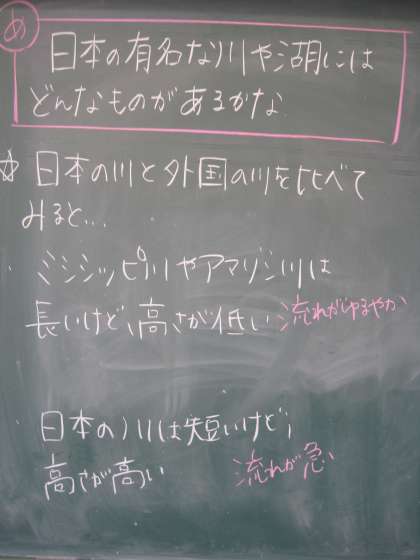 め
日本の有名な川や湖には
どんなものがあるかな
☆日本の川と外国の川を比べて
みると…
・ミシシッピ川やアマゾン川は
長いけど、高さが低い 流れがゆるやか
・日本の川は短いけど、
高さが高い 流れが急